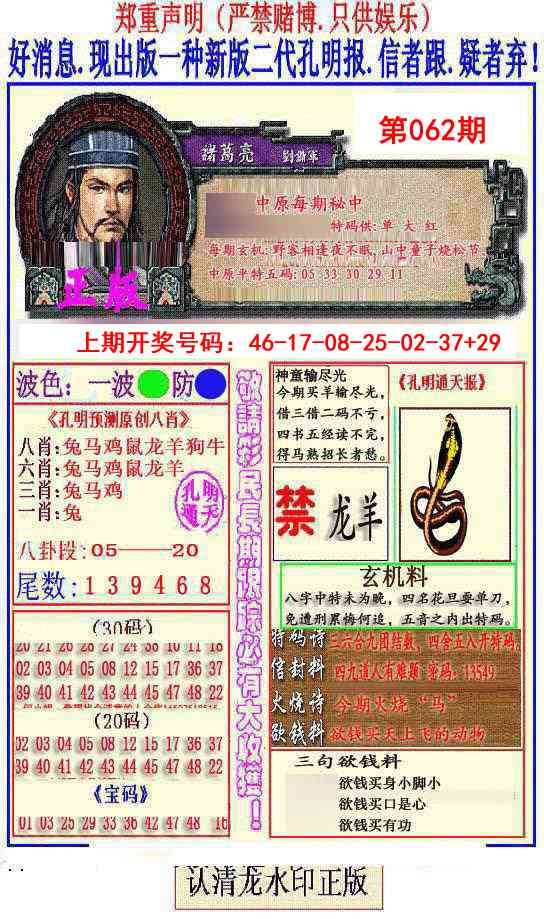 郑重声明（严禁赌博.只供娱乐）
好消息.现出版一种新版二代孔明报.信者跟.疑者弃！
第062期
諸葛亮 劉備軍
中原每期秘中
特码供:单 大 红
每期玄机:野客相逢夜不眠,山中童子烧松节
中原平特五码:05 33 30 29 11
正版
上期开奖号码：46-17-08-25-02-37+29
波色：一波 防
《孔明预测原创八肖》
八肖:兔马鸡鼠龙羊狗牛
六肖:兔马鸡鼠龙羊
三肖:兔马鸡
一肖:兔
孔明通天
八卦段:05——20
尾数:139468
(30码)
20 21 26 28 27 24 38 10 11 18
02 03 04 05 08 12 15 17 36 37
39 40 41 42 43 44 45 47 48 22
(20码)
02 03 04 05 08 12 15 17 36 37
39 40 41 42 43 44 45 47 48 22
《宝码》
01 03 25 29 33 36 42 47 48 16
敬請彩民長期跟踪必有大收獲！
神童输尽光
今期买羊输尽光，
借三借二码不亏，
四书五经读不完，
得马熟招长者愁。
《孔明通天报》
禁 龙羊
玄机料
八字中特未为晚，四名花旦耍单刀，
免遭刑累悔何追，五音之内出特码。
特码诗 三六合九团结数，四舍五八开特码
信封料 四九道人有难题 密码：13549
火烧诗 今期火烧“马”
欲钱料 欲钱买天上飞的动物
三句欲钱料
欲钱买身小脚小
欲钱买口是心
欲钱买有功
认清龙水印正版